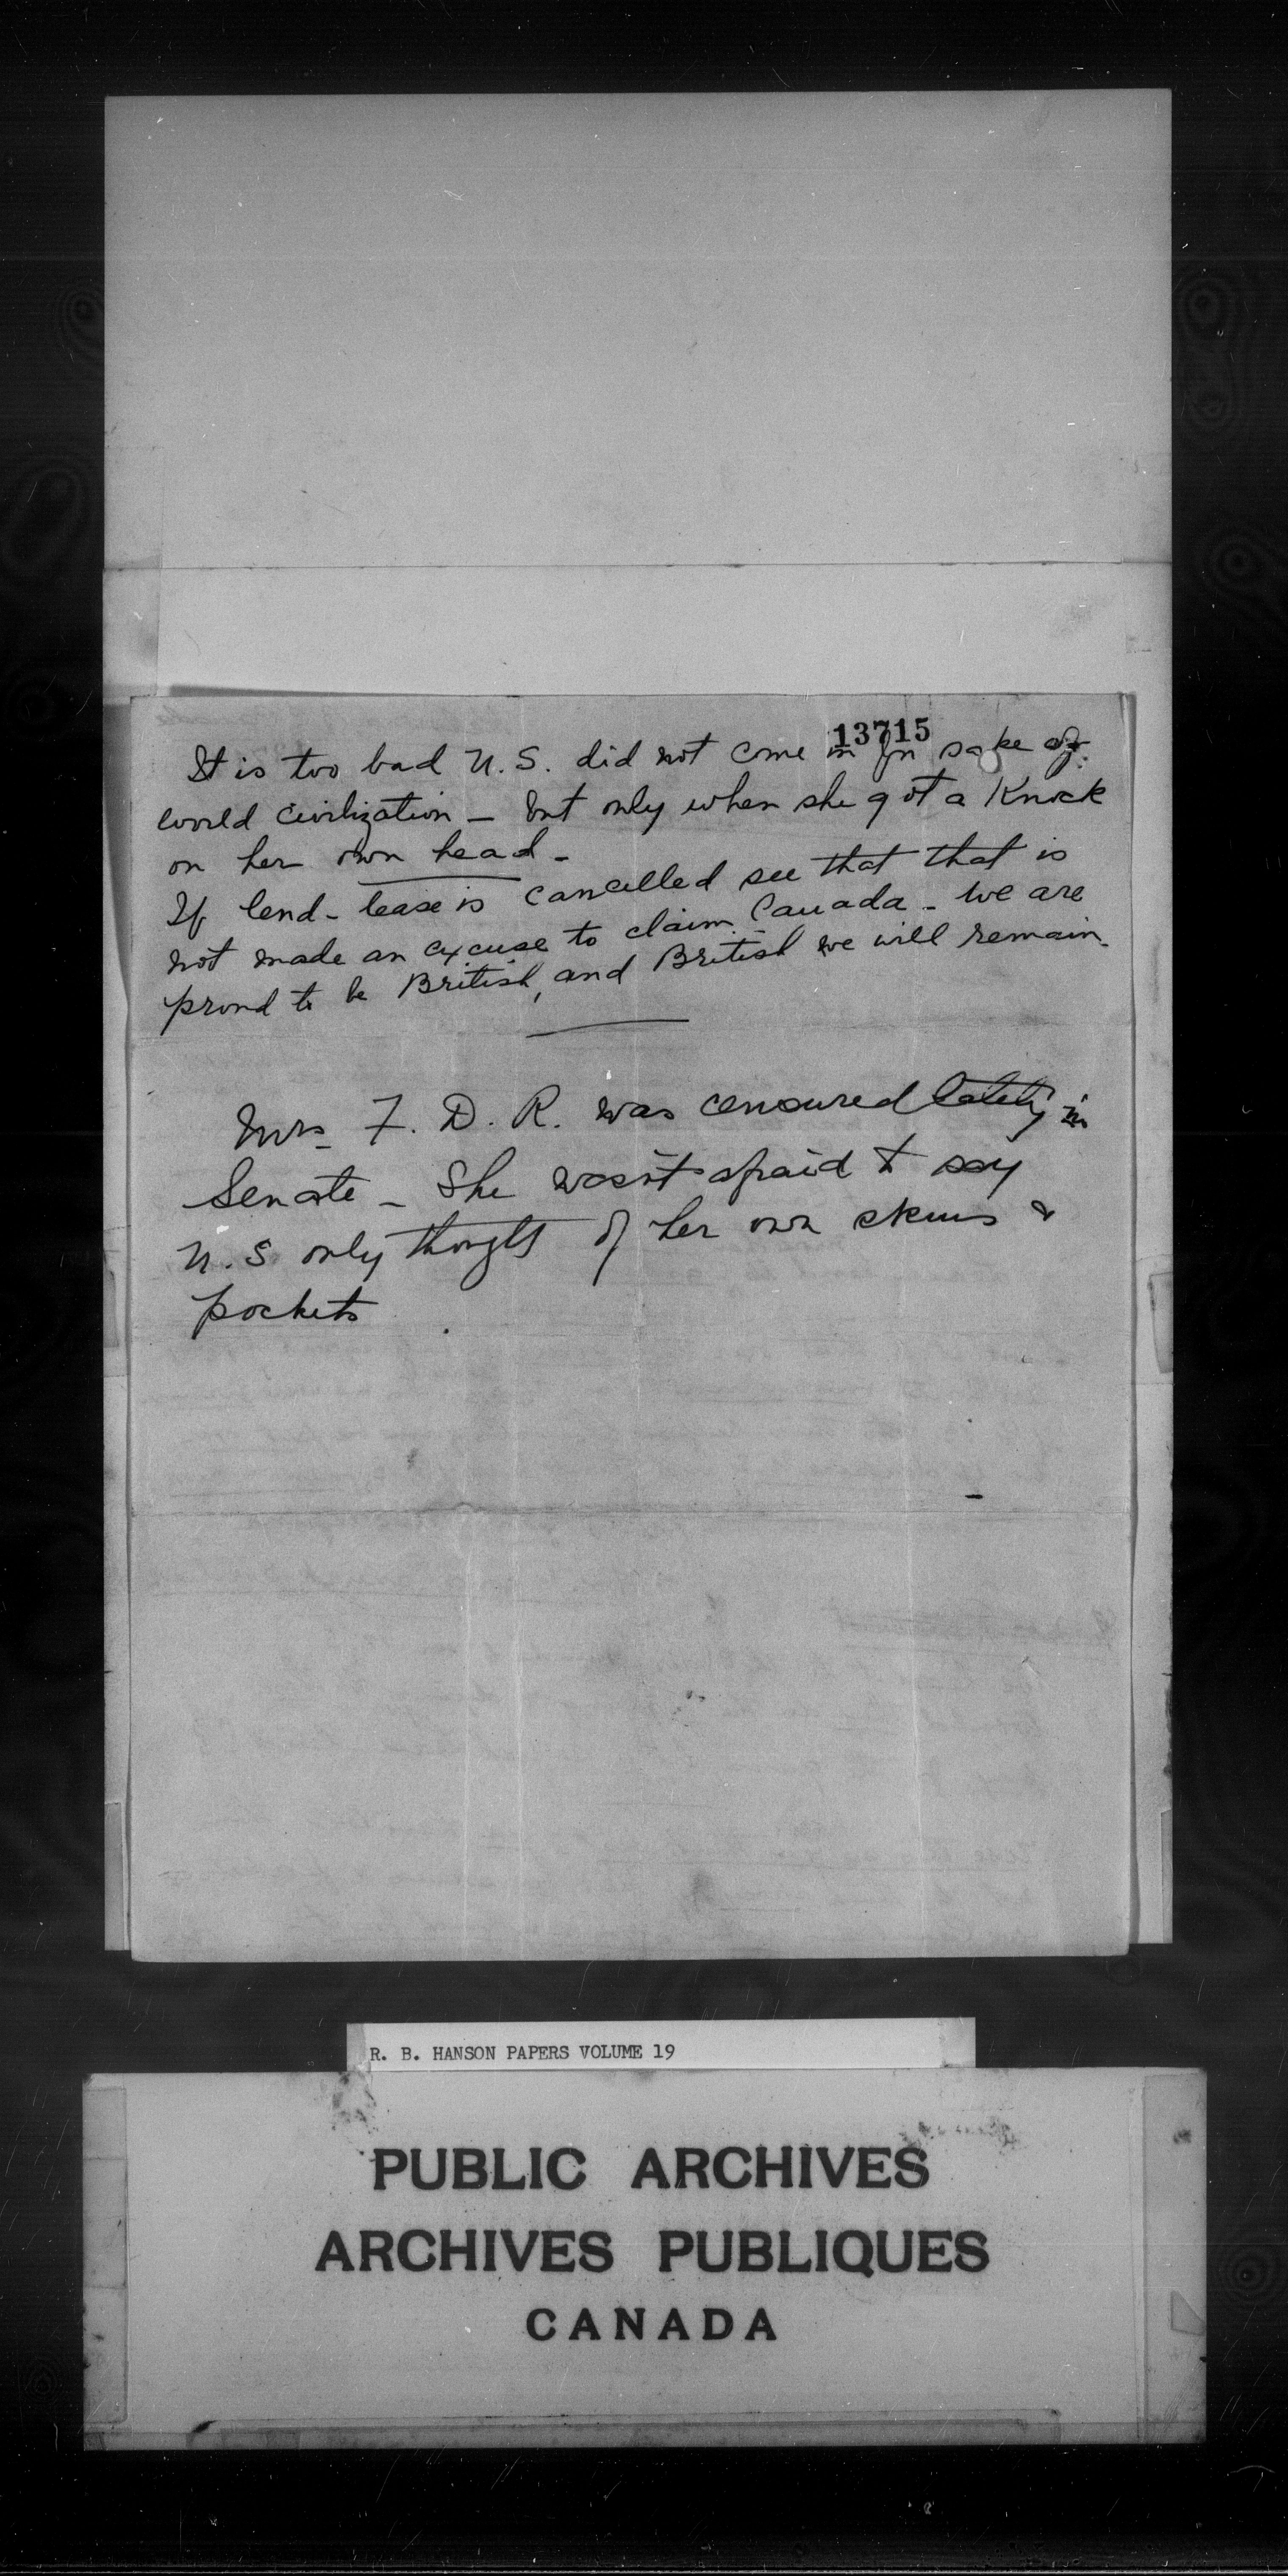 13715
It is too bad U.S. did not come in for sake of
world civilization – but only when she got a knock
on her own head –
If lend-lease is cancelled see that that is
not made an excuse to claim Canada – we are
proud to be British, and British we will remain.
Mrs F. D. R. was censured lately in
Senate – She wasn't afraid to say
U.S. only thought of her own skins &
pockets.
R. B. HANSON PAPERS VOLUME 19
PUBLIC ARCHIVES
ARCHIVES PUBLIQUES
CANADA